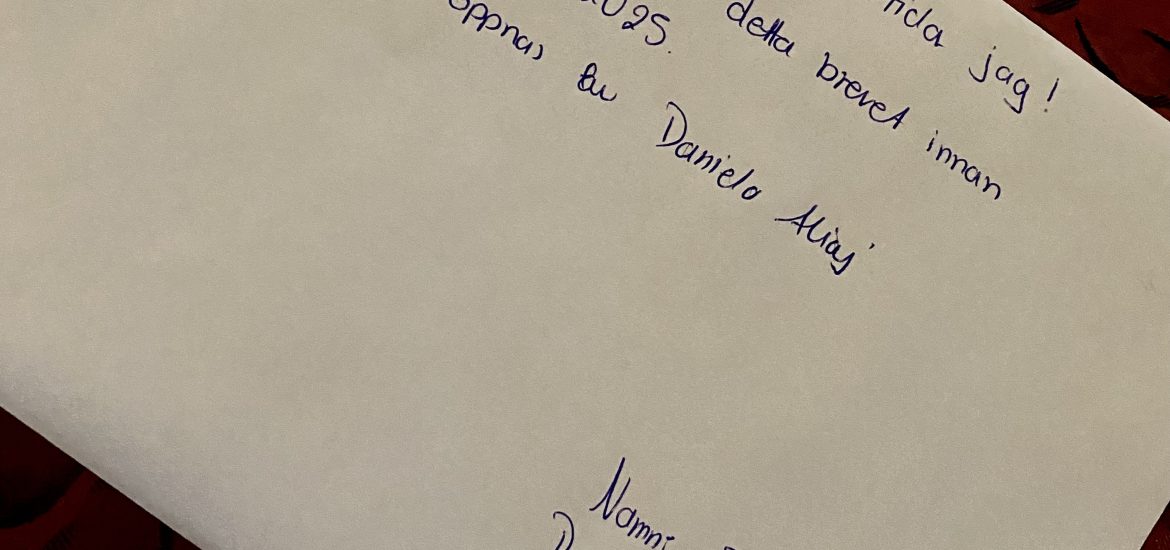 jag!
detta brevet innan
2025.
öppnas av Daniela Alias
Namn: